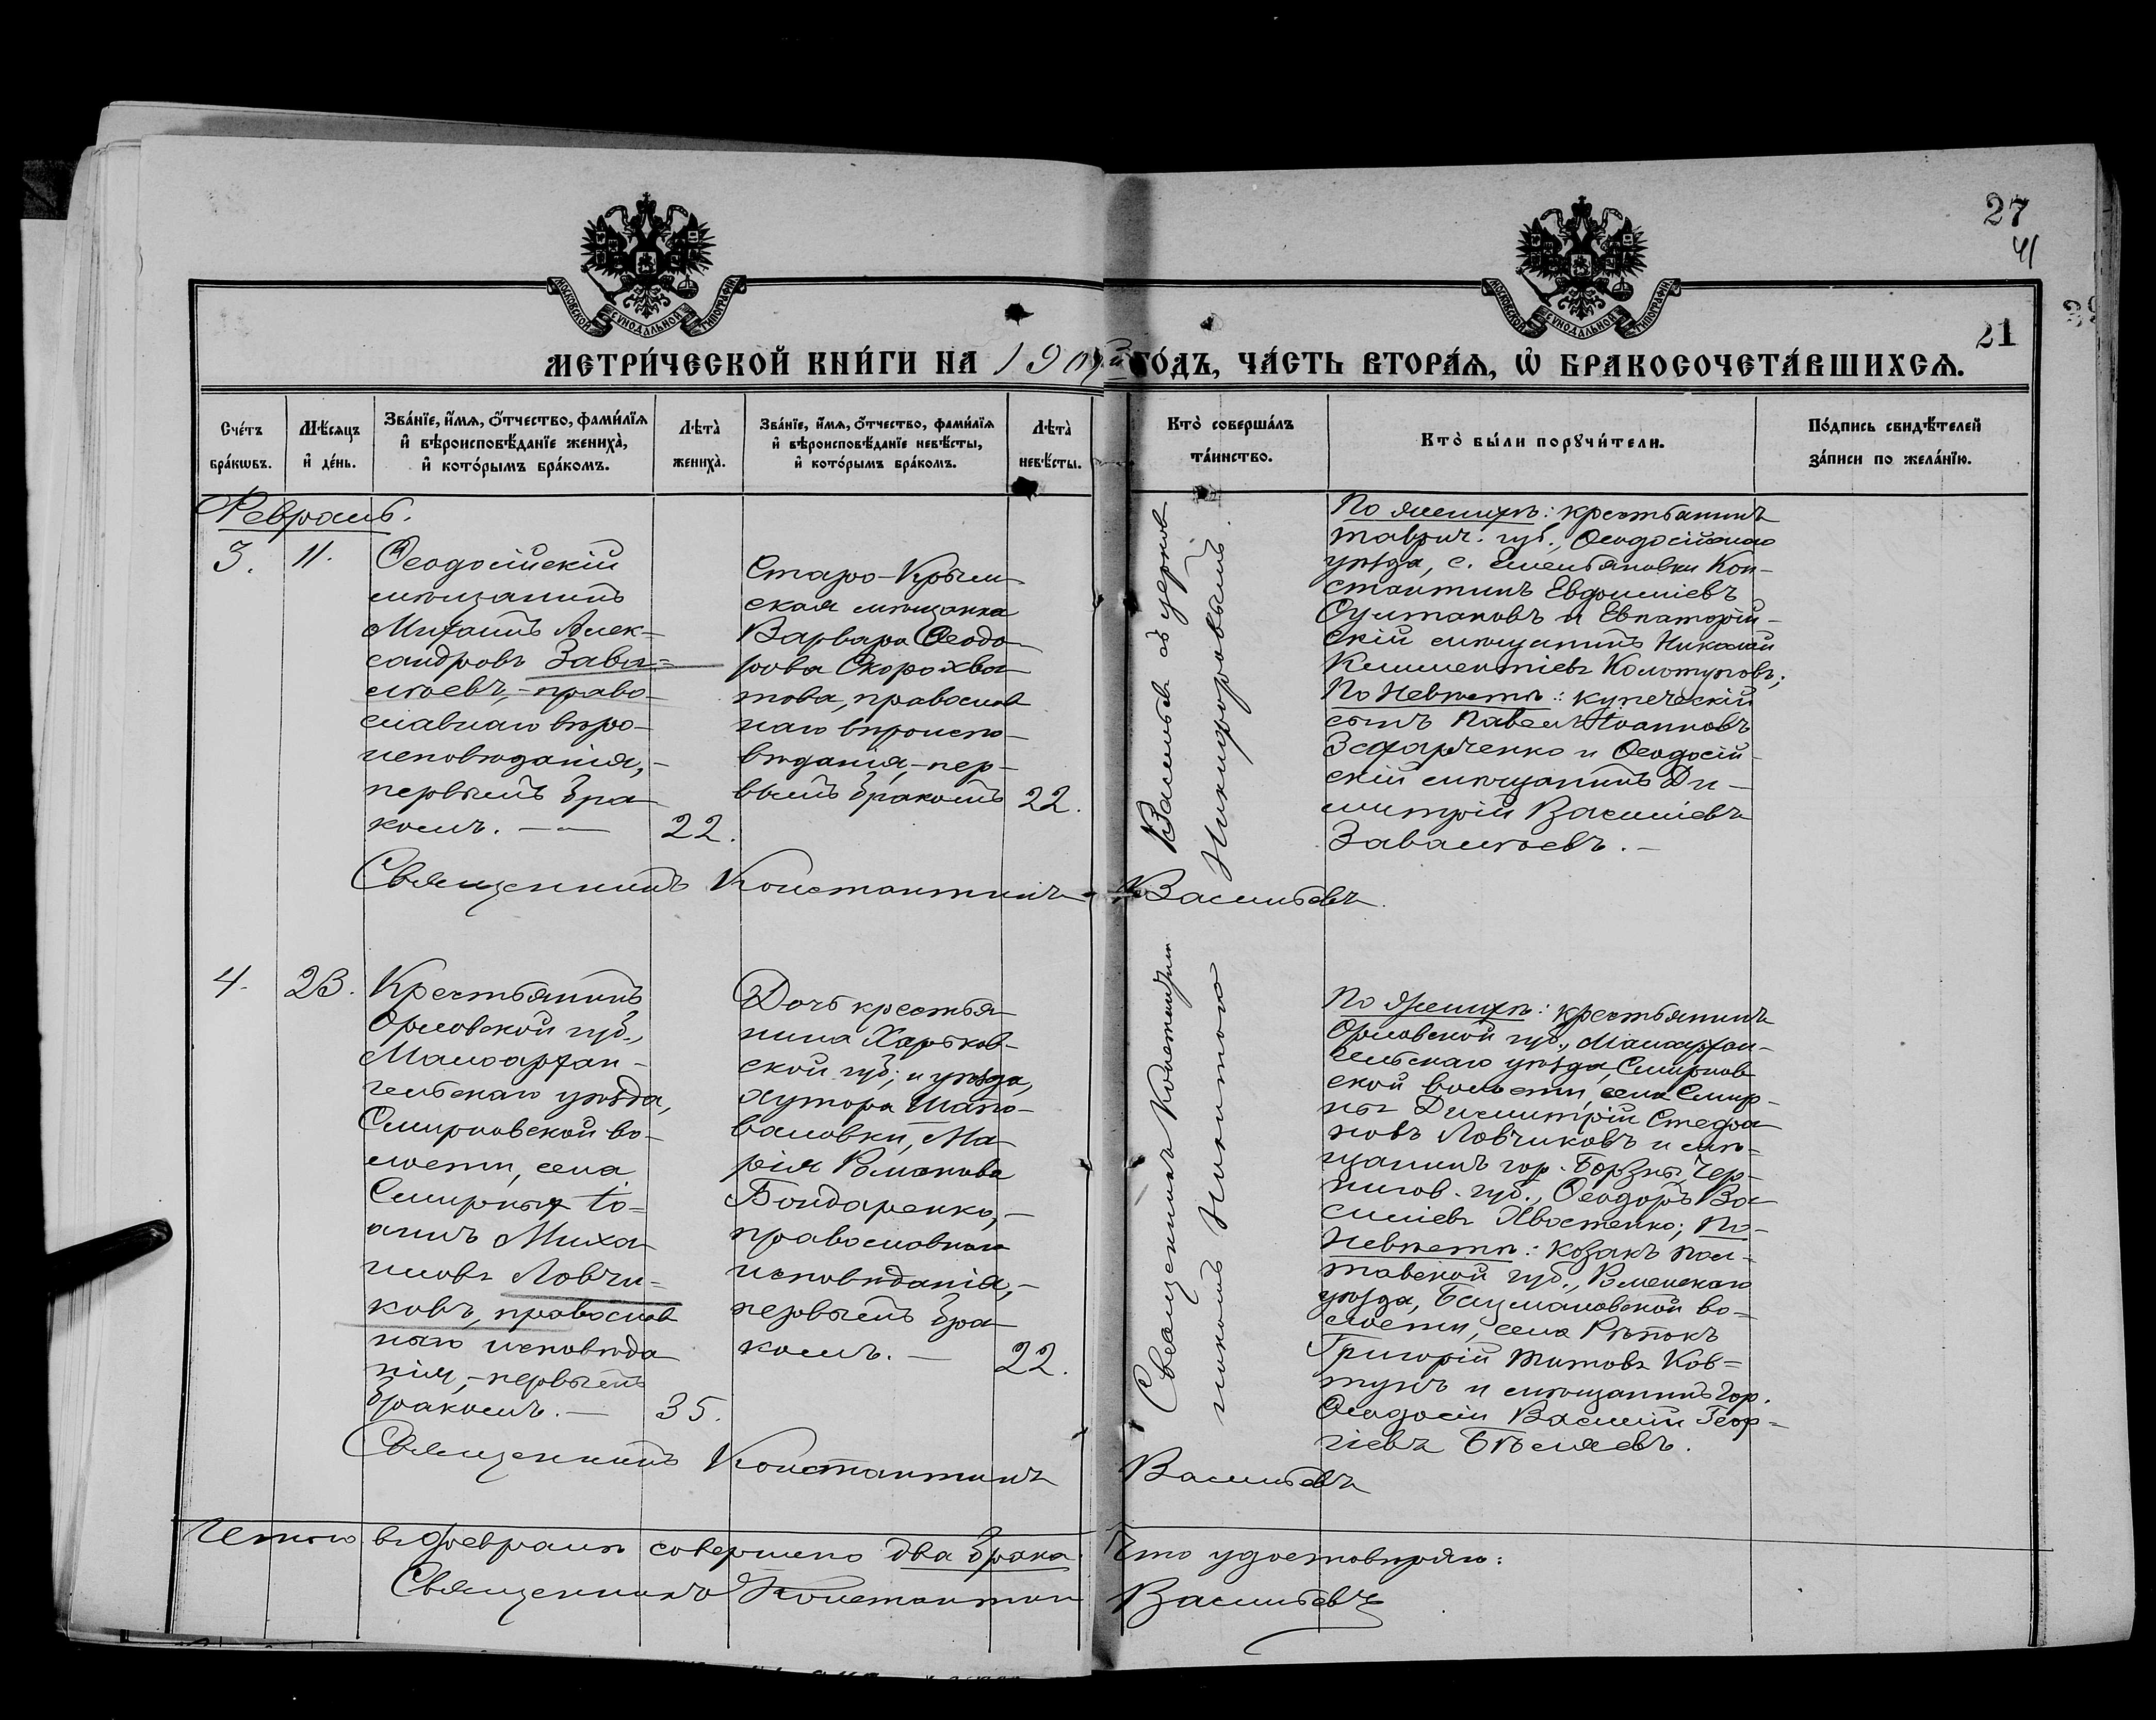 27
41
21
МОСКОВСКОЙ СѴНОДАЛЬНОЙ ТИПОГРАФІИ
МОСКОВСКОЙ СѴНОДАЛЬНОЙ ТИПОГРАФІИ
МЕТРИ́ЧЕСКОЙ КНИ́ГИ НА 190 ГО́ДЪ, ЧА́СТЬ ВТОРА́Ѧ, Ѡ҆ БРАКОСОЧЕТА́ВШИХСѦ.
Сче́тъ бра́кѡвъ.
Мѣ́сѧцъ и҆ де́нь.
Зва́нїе, и҆́мѧ, ѻ҆́тчество, фами́лїѧ и҆ вѣроисповѣ́данїе жениха̀, и҆ кото́рымъ бра́комъ.
Лѣта̀ жениха̀.
Зва́нїе, и҆́мѧ, ѻ҆́тчество, фами́лїѧ и҆ вѣроисповѣ́данїе невѣ́сты, и҆ кото́рымъ бра́комъ.
Лѣта̀ невѣ́сты.
Кто̀ соверша́лъ та́инство.
Кто̀ бы́ли порꙋчи́тели.
По́дпись свидѣ́телей за́писи по жела́нїю.
Февраль.
3.
11.
Ѳеодосійскій
мѣщанинъ
Михаилъ Алек-
сандровъ Зава-
лѣевъ,- право-
славнаго вѣро-
исповѣданія,-
первымъ бра
комъ. —
22.
Старо-Крым
ская мѣщанка
Варвара Ѳеодо
рова Скорохва
това, православ
наго вѣроиспо-
вѣданія,-пер-
вымъ бракомъ
22.
Никифоровымъ.
По женихѣ: крестьянинъ
Таврич. губ., Ѳеодосійскаго
уѣзда, с. Емельяновки Кон-
стантинъ Евдокиміевъ
Султановъ и Евпаторій-
скій мѣщанинъ Николай
Климентіевъ Колотуповъ;
По Невѣстѣ: купеческій
сынъ Павелъ Іоанновъ
Захарченко и Ѳеодосій-
скій мѣщанинъ Ди-
митрій Василіевъ
Завалѣевъ. —
Священникъ Константинъ Васильевъ.
4.
23.
Крестьянинъ
Орловской губ.,
Малоархан-
гельскаго уѣзда,
Смирновской во-
лости, села
Смирныхъ Іо-
аннъ Миха
иловъ Ловчи-
ковъ, православ
наго исповѣда
нія,- первымъ
бракомъ. —
35.
Дочь крестья
нина Харьков-
ской губ., и уѣзда,
хутора Шапо-
валовки, Ма-
рія Романова
Бондаренко,-
православнаго
исповѣданія,-
первымъ бра
комъ. —
22.
Священникъ Константинъ
По женихѣ: крестьянинъ
Орловской губ., Малоархан-
гельскаго уѣзда, Смирнов
ской волости, села Смир-
ныхъ Димитрій Стефа
новъ Ловчиковъ и мѣ-
щанинъ гор. Борзны, Чер-
нигов. губ., Ѳеодоръ Ва
силіевъ Хвостенко; По-
Невѣстѣ: козакъ Пол-
тавской губ., Роменскаго
уѣзда, Бацмановской во-
лости, села Рѣпокъ
Григорій Титовъ Ков-
тунъ и мѣщанинъ гор.
Ѳеодосіи Василій Геор-
гіевъ Бѣляевъ.
Священникъ Константинъ Васильевъ
Итого въ Февралѣ совершено два брака. Что удостовѣряю:
Священникъ Константинъ Васильевъ